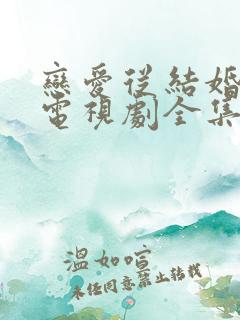 戀愛從結婚
電視劇全集
溫如喧
未经同意禁止转载